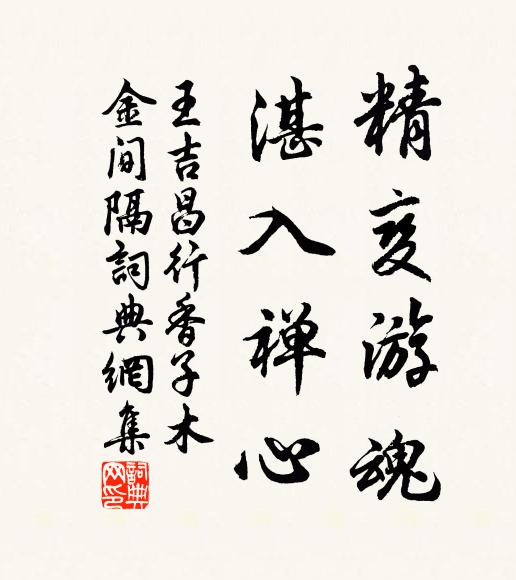 精变游魂
湛入禅心
王吉昌行香子木
金间隔詞典網集
詞典网印